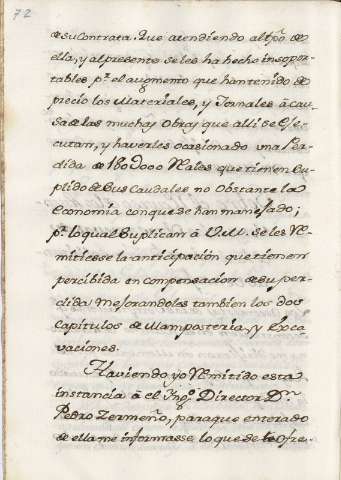 72
de su Contrata. Que atendiendo al tpõ. de
ella, y al presente seles ha hecho insopor-
tables pr. el augmento que han tenido de
precio los Materiales, y Jornales à cau-
sa de las muchas Obras que alli se Eje-
cutan, y haverles ocasionado una Per-
dida de 180 D000 Reales que tienen Su-
plido de Sus Caudales, no Obstante la
Economia con que se han manejado;
pr. lo qual Suplican à V.M. se les Re-
mitiesse la anticipación que tienen
percibida en compensacion de su per-
dida mejorandoles tambien los dos
Capitulos de Mamposteria, y Exca-
vaciones.
Haviendo yo Remitido esta
instancia à el Ingo. Director Dn.
Pedro Zermeño, para que enterado
de ella me informasse lo que se le Ofre-